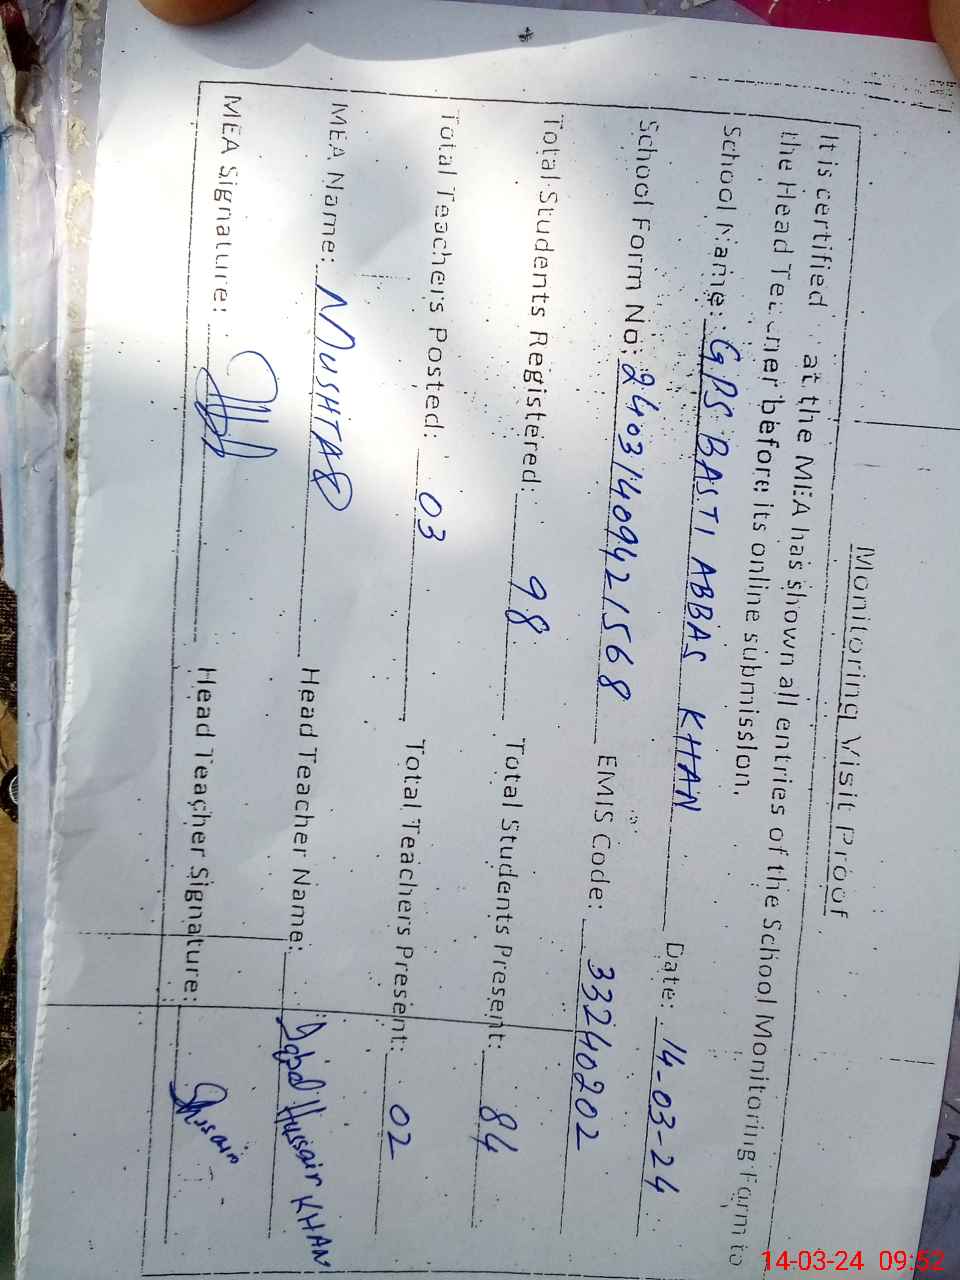 Monitoring Visit Proof
It is certified at the MEA has shown all entries of the School Monitoring Form to
the Head Teacher before its online submission.
School Name: GPS BASTI ABBAS KHAN Date: 14-03-24
School Form No: 24031409421568 EMIS Code: 33240202
Total Students Registered: 98 Total Students Present: 84
Total Teachers Posted: 03 Total Teachers Present: 02
MEA Name: MUSHTAQ Head Teacher Name: Iqbal Hussain KHAN
MEA Signature: Head Teacher Signature: Hussain
14-03-24 09:52